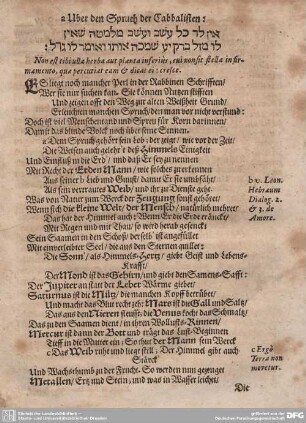 a Uber den Spruch der Cabbalisten:
אין לך כל עשב ועשב מלמטה שאין
לו מזל ברקיע שמכה אותו ואומר לו גדל:
Non est tibi ulla herba aut planta inferius, cui non sit stella in fir-
mamento, quæ percutiat eam & dicat ei: cresce.
ES liegt noch mancher Perl in der Rabbinen Schrifften/
Wer sie nur suchen kan. Sie können Nutzen stifften
Und zeigen offt den Weg zur alten Weißheit Grund/
Erleuchten manchen Spruch/ der man vor nicht verstund:
Doch ist viel Menschentand und Spreu für Korn darinnen/
Damit das blinde Volck noch über diese Sinnen.
a Dem Spruch gehört sein lob: der zeigt/ wie vor der Zeit/
Die Weisen auch gelehrt deß Himmels Einigkeit
Und Einfluß in die Erd/ und daß Er sey zu nennen
Mit Recht der Erden Mann/ mit solches zuerkennen
Aus seiner b Lieb und Gunst/ damit Er ist umfäht/
Als sein vertrautes Weib/ und ihr zu Dienste geht.
Was von Natur zum Werck der Zeugung sonst gehöret/
Wenn sich die kleine Welt/ der Mensch/ natürlich mehret/
Das hat der Himmel auch: Wenn Er die Erde erdrückt/
Mit Regen und mit Thau/ so wird herab geschickt
Sein Saamen in den Schoß/ derselb' ist angefüllet
Mit eingeleibter Seel/ die aus den Sternen quillet:
Die Sonn'/ als Himmels-Hertz/ giebt Geist und Lebens-
Krafft/
Der Mond ist das Gehirn/ und giebt den Samens-Safft:
Der Jupiter an statt der Leber Wärme giebet/
Saturnus ist die Miltz/ die manchen Kopff betrübet/
Und macht das Blut recht zeh: Mars ist die Gall und Saltz/
Das aus den Nieren fleust: die Venus kocht das Schmaltz/
Das zu den Saamen dient/ in ihren Wollusts-Rinnen/
Mercur ist dann der Bott und trägt das Lust-Beginnen
Tieff in die Mutter ein; So thut der Mann sein Werck
c Das Weib ruht und liegt still; Der Himmel gibt auch
Stärck
Und Wachsthumb zu der Frucht: So werden nun gezeuget
Metallen/ Ertz und Stein; und was in Wasser leichet/
Die
b v. Leon.
Hebræum
Dialog. 2.
& 3. de
Amore.
c Ergò
Terra non
movetur.